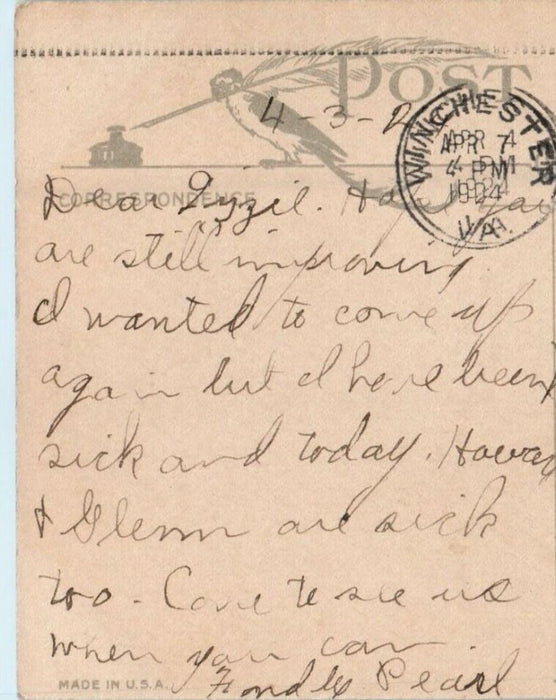 POST
4-3-2
WINCHESTER
APR 7
4 PM
1924
VA.
CORRESPONDENCE
Dear Hope you
are still improving.
I wanted to come up
again but I have been
sick and today. Howard
& Glenn are sick
too - Come to see us
when you can
Fondly Pearl
MADE IN U.S.A.